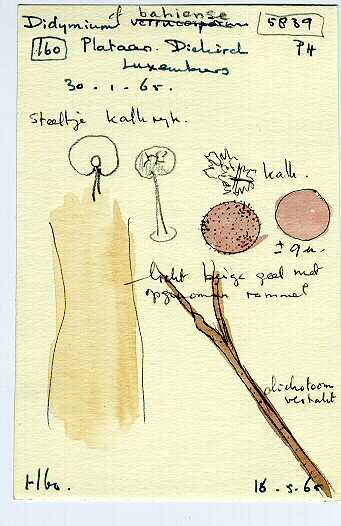 cf bahiense
Didymium verrucosporum 5839
160 Plataan. Diekirch PH
Luxemburg
30-1-65.
Steeltje kalkryk.
kalk.
± 9 µ.
licht beige geel met
opgenomen rommel
dichotoom
vertakt
H60. 16.5.65